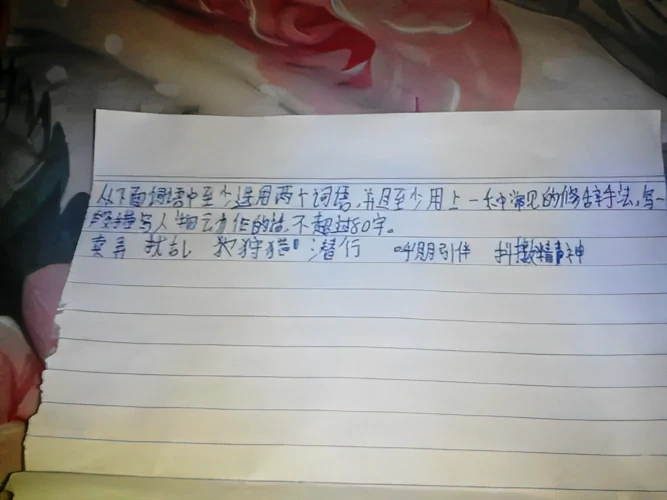 从下面词语中至少选用两个词语,并且至少用上一种常见的修辞手法,写一
段描写人物动作的话,不超过80字。
卖弄 扰乱 狩猎 潜行 呼朋引伴 抖擞精神